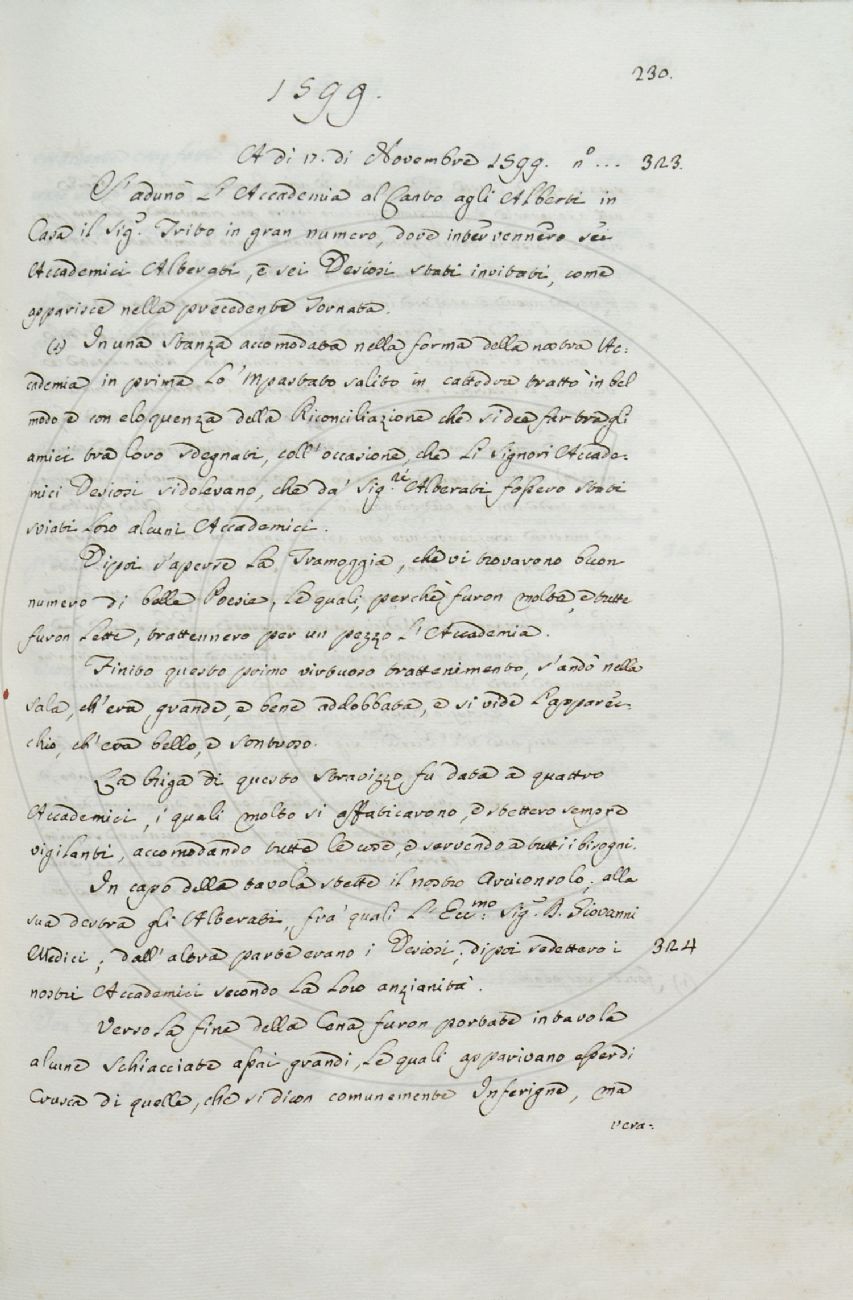 230.
1599.
A di 17. di Novembre 1599. n.° ... 323.
S'adunò L'Accademia al Canto agli Alberti in
Casa il Sig.r Trito in gran numero, dove intervennero sei
Accademici Alterati, e sei Desiosi stati invitati, come
apparisce nella precedente Tornata.
In una stanza accomodata nella forma della nostra Ac:
cademia in prima Lo 'Mpastato salito in cattedra trattò in bel
modo e con eloquenza della Riconciliazione che si dee far tra gli
amici tra loro sdegnati, coll'occasione, che Li Signori Accade:
mici Desiosi si dolevano, che da' Sig.ri Alterati fossero stati
sviati Loro alcuni Accademici.
Dipoi s'aperse La Tramoggia, che vi trovarono buon
numero di belle Poesie, Le quali, perchè furon molte, e tutte
furon Lette, trattennero per un pezzo L'Accademia.
Finito questo primo virtuoso trattenimento, s'andò nella
sala, ch'era grande, e bene addobbata, e si vide L'apparec:
chio, ch'era bello, e sontuoso.
La briga di questo stravizzo fu data a quattro
Accademici, i quali molto si affaticarono, e stettero sempre
vigilanti, accomodando tutte le cose, e servendo a tutti i bisogni.
In capo della tavola stette il nostro Arciconsolo; alla
sua destra gli Alterati, fra' quali L'Ecc.mo Sig.r D. Giovanni
Medici; dall'altra parte erano i Desiosi; dipoi sedettero i 324
nostri Accademici secondo La Loro anzianità.
Verso La fine della Cena furon portate in tavola
alcune schiacciate assai grandi, Le quali apparivano esser di
Crusca di quelle, che si dicon comunemente Inferigne, ma
vera: